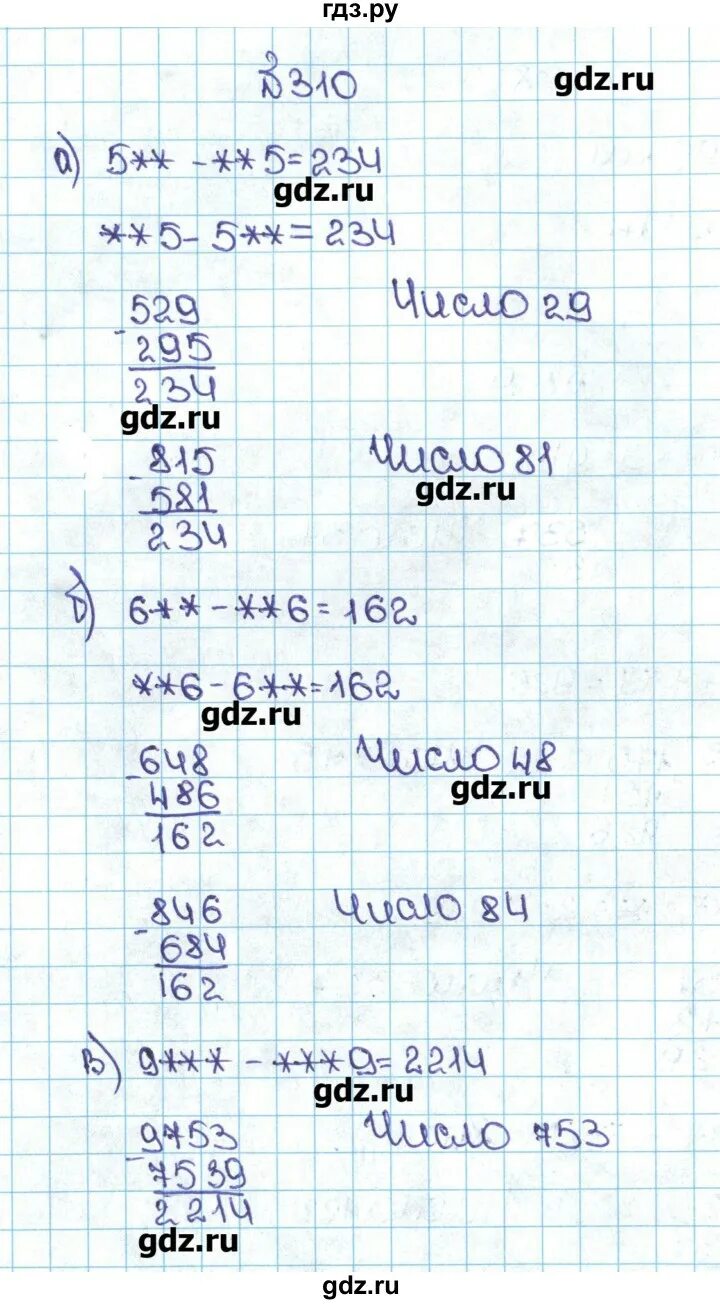 гдз.ру
№310
gdz.ru
а) 5** - **5=234
gdz.ru
**5- 5**=234
529
- 295
234
Число 29
gdz.ru
- 815
581
234
Число 81
gdz.ru
б) 6** - **6=162
**6-6**=162
gdz.ru
- 648
486
162
Число 48
gdz.ru
- 846
684
162
Число 84
в) 9*** - ***9=2214
gdz.ru
- 9753
7539
2214
Число 753
gdz.ru
gdz.ru